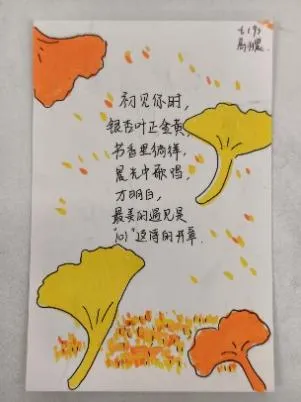 七(9)
初见你时，
银杏叶正金黄，
书香里徜徉，
晨光中歌唱，
方明白，
最美的遇见是
"101"这诗的开章.